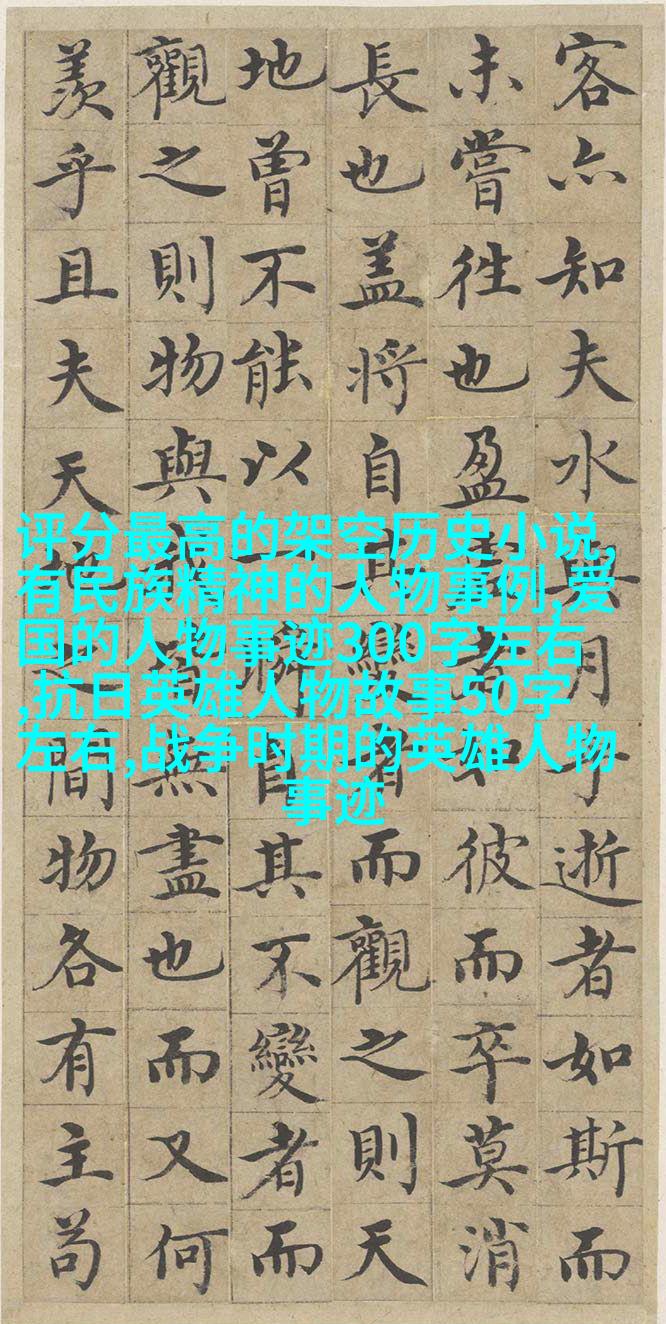 客亦知夫水與月乎逝者如斯而
未嘗往也盈虛者如彼而卒莫消
長也盖將自其變者而觀之則天
地曾不能以一瞬自其不變者而
觀之則物與我皆無盡也而又何
羨乎且夫天地之間物各有主苟
评分最高的架空历史小说,
有民族精神的人物事例,爱
国的人物事迹300字左右
,抗日英雄人物故事50字
左右,战争时期的英雄人物
事迹